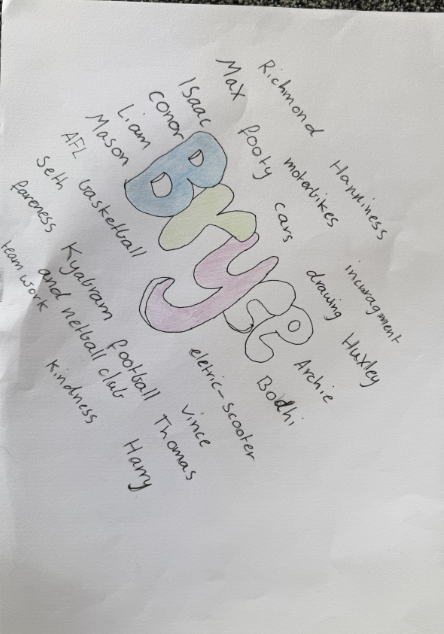 Richmond
Happiness
Max
footy
motorbikes
incuragment
Isaac
cars
drawing
Huxley
conor
Liam
Mason
AFL
basketball
Bryce
Archie
Bodhi
Seth
fareness
Kyabram football
and netball club
eletric-scooter
team work
vince
Thomas
kindness
Harry